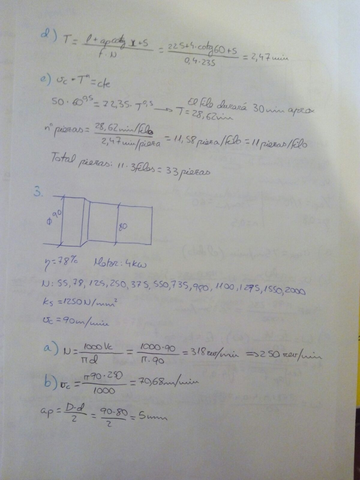 d) T = (l + ap·cotg χ + 5) / (f·N) = (225+5·cotg60+5) / (0,4·235) = 2,47 min
e) vc · Tⁿ = cte
50 · 80^0,5 = 22,35 · T^0,5 → T = 28,62 min El filo durará 30 min aprox
nº piezas = (28,62 min/filo) / (2,47 min/pieza) = 11,58 pieza/filo = 11 piezas/filo
Total piezas: 11·3 filos = 33 piezas
3.
Φ90
80
η = 78% Motor: 4kw
N: 55, 78, 125, 250, 375, 550, 735, 980, 1100, 1275, 1550, 2000
ks = 1250 N/mm²
vc = 90 m/min
a) N = 1000 Vc / π d = 1000·90 / π·90 = 318 rev/min ⇒ 250 rev/min
b) vc = π90·250 / 1000 = 70,68 m/min
ap = (D-d) / 2 = (90-80) / 2 = 5mm